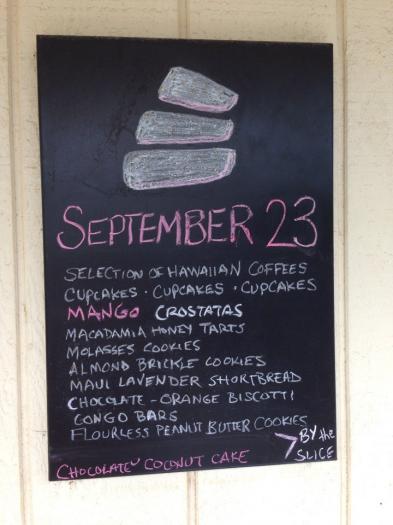 SEPTEMBER 23
SELECTION OF HAWAIIAN COFFEES
CUPCAKES · CUPCAKES · CUPCAKES
MANGO CROSTATAS
MACADAMIA HONEY TARTS
MOLASSES COOKIES
ALMOND BRICKLE COOKIES
MAUI LAVENDER SHORTBREAD
CHOCOLATE - ORANGE BISCOTTI
CONGO BARS
FLOURLESS PEANUT BUTTER COOKIES
CHOCOLATE COCONUT CAKE
BY the
SLICE